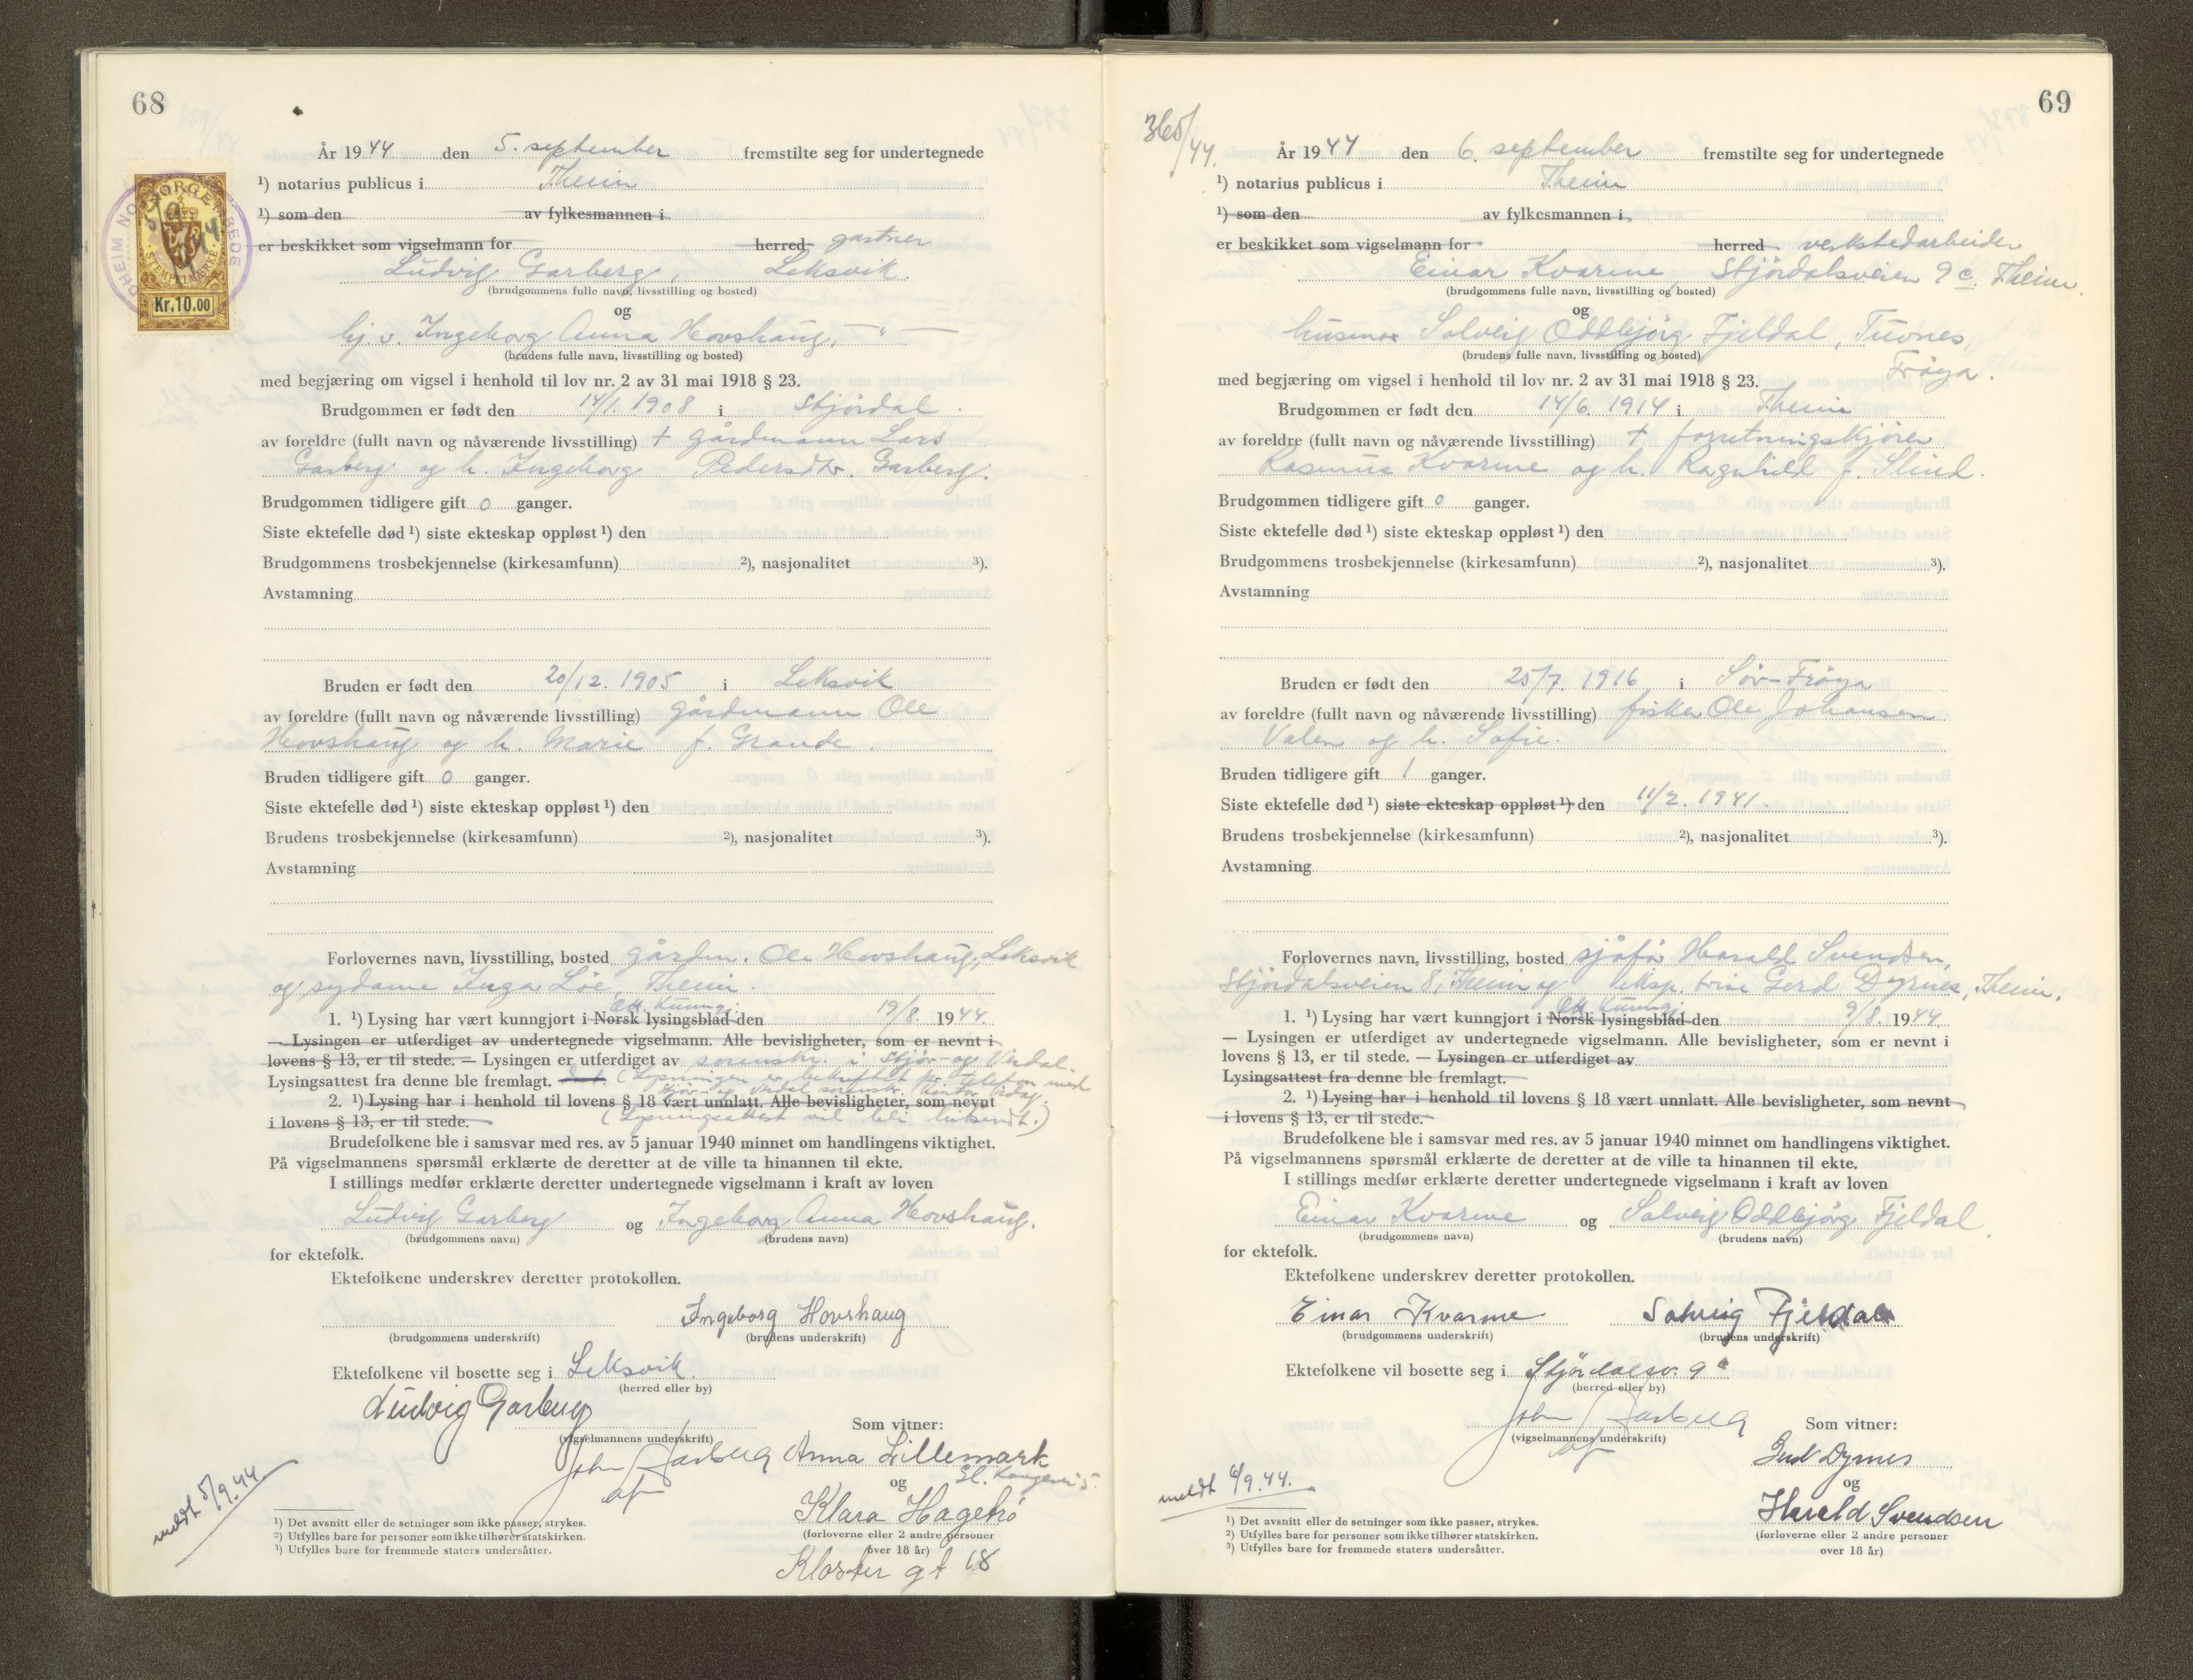 68
År 1944 den 5. september fremstilte seg for undertegnede
¹) notarius publicus i Theim
¹) som den av fylkesmannen i
er beskikket som vigselmann for herred gartner
Ludvig Garberg, Leksvik.
(brudgommens fulle navn, livsstilling og bosted)
og
hj. v. Ingeborg Anna Hovshaug, — " —
(brudens fulle navn, livsstilling og bosted)
med begjæring om vigsel i henhold til lov nr. 2 av 31 mai 1918 § 23.
Brudgommen er født den 14/1. 1908 i Stjördal.
av foreldre (fullt navn og nåværende livsstilling) + gårdmann Lars
Garberg og h. Ingeborg Pedersdtr. Garberg.
Brudgommen tidligere gift 0 ganger.
Siste ektefelle død ¹) siste ekteskap oppløst ¹) den
Brudgommens trosbekjennelse (kirkesamfunn) ²), nasjonalitet ³).
Avstamning
Bruden er født den 20/12. 1905 i Leksvik
av foreldre (fullt navn og nåværende livsstilling) gårdmann Ole
Hovshaug og h. Marie f. Grande.
Bruden tidligere gift 0 ganger.
Siste ektefelle død ¹) siste ekteskap oppløst ¹) den
Brudens trosbekjennelse (kirkesamfunn) ²), nasjonalitet ³).
Avstamning
Forlovernes navn, livsstilling, bosted gårdm. Ole Hovshaug, Leksvik
og sydame Inga Löe, Theim.
Off. Kunngj.
1. ¹) Lysing har vært kunngjort i Norsk lysingsblad den 19/8. 1944.
— Lysingen er utferdiget av undertegnede vigselmann. Alle bevisligheter, som er nevnt i
lovens § 13, er til stede. — Lysingen er utferdiget av sorenskr. i Stjör- og Verdal.
Lysingsattest fra denne ble fremlagt. (Lysningen er bekreftet pr. telefon med
Stjör- og Verdal sorenskr. kontor idag.
2. ¹) Lysing har i henhold til lovens § 18 vært unnlatt. Alle bevisligheter, som nevnt
i lovens § 13, er til stede. (Lysningsattest vil bli innsendt.)
Brudefolkene ble i samsvar med res. av 5 januar 1940 minnet om handlingens viktighet.
På vigselmannens spørsmål erklærte de deretter at de ville ta hinannen til ekte.
I stillings medfør erklærte deretter undertegnede vigselmann i kraft av loven
Ludvig Garberg og Ingeborg Anna Hovshaug.
(brudgommens navn) (brudens navn)
for ektefolk.
Ektefolkene underskrev deretter protokollen.
Ingeborg Hovshaug
(brudgommens underskrift) (brudens underskrift)
Ektefolkene vil bosette seg i Leksvik.
(herred eller by)
Ludvig Garberg
Som vitner:
(vigselmannens underskrift)
John Aasberg Anna Lillemark
og Gl. Kongevei 5.
Klara Hagebö
(forloverne eller 2 andre personer
over 18 år)
Kloster gt 18
meldt 5/9.44
¹) Det avsnitt eller de setninger som ikke passer, strykes.
²) Utfylles bare for personer som ikke tilhører statskirken.
³) Utfylles bare for fremmede staters undersåtter.
NORGE
STEMPELMERKE
Kr.10.00
69
365/44.
År 1944 den 6. september fremstilte seg for undertegnede
¹) notarius publicus i Theim
¹) som den av fylkesmannen i
er beskikket som vigselmann for herred verkstedarbeider
Einar Kvarme, Stjördalsveien 9 c. Theim.
(brudgommens fulle navn, livsstilling og bosted)
og
husmor Solveig Oddbjörg Fjeldal, Tuvnes,
(brudens fulle navn, livsstilling og bosted)
Fröya.
med begjæring om vigsel i henhold til lov nr. 2 av 31 mai 1918 § 23.
Brudgommen er født den 14/6. 1914 i Theim
av foreldre (fullt navn og nåværende livsstilling) + forretningskjörer
Rasmus Kvarme og h. Ragnhild f. Slind.
Brudgommen tidligere gift 0 ganger.
Siste ektefelle død ¹) siste ekteskap oppløst ¹) den
Brudgommens trosbekjennelse (kirkesamfunn) ²), nasjonalitet ³).
Avstamning
Bruden er født den 25/7. 1916 i Sör-Fröya
av foreldre (fullt navn og nåværende livsstilling) fisker Ole Johansen
Valen og h. Sofie.
Bruden tidligere gift 1 ganger.
Siste ektefelle død ¹) siste ekteskap oppløst ¹) den 11/2. 1941.
Brudens trosbekjennelse (kirkesamfunn) ²), nasjonalitet ³).
Avstamning
Forlovernes navn, livsstilling, bosted sjåför Harald Svendsen,
Stjördalsveien 8, Theim og eksp. trise Gerd Dyrnes, Theim.
Off. Kunngj.
1. ¹) Lysing har vært kunngjort i Norsk lysingsblad den 9/8. 1944.
— Lysingen er utferdiget av undertegnede vigselmann. Alle bevisligheter, som er nevnt i
lovens § 13, er til stede. — Lysingen er utferdiget av
Lysingsattest fra denne ble fremlagt.
2. ¹) Lysing har i henhold til lovens § 18 vært unnlatt. Alle bevisligheter, som nevnt
i lovens § 13, er til stede.
Brudefolkene ble i samsvar med res. av 5 januar 1940 minnet om handlingens viktighet.
På vigselmannens spørsmål erklærte de deretter at de ville ta hinannen til ekte.
I stillings medfør erklærte deretter undertegnede vigselmann i kraft av loven
Einar Kvarme og Solveig Oddbjörg Fjeldal.
(brudgommens navn) (brudens navn)
for ektefolk.
Ektefolkene underskrev deretter protokollen.
Einar Kvarme Solveig Fjeldal
(brudgommens underskrift) (brudens underskrift)
Ektefolkene vil bosette seg i Stjördalsv. 9 c
(herred eller by)
John Aasberg
Som vitner:
(vigselmannens underskrift)
Gerd Dyrnes
og
Harald Svendsen
(forloverne eller 2 andre personer
over 18 år)
meldt 6/9.44.
¹) Det avsnitt eller de setninger som ikke passer, strykes.
²) Utfylles bare for personer som ikke tilhører statskirken.
³) Utfylles bare for fremmede staters undersåtter.